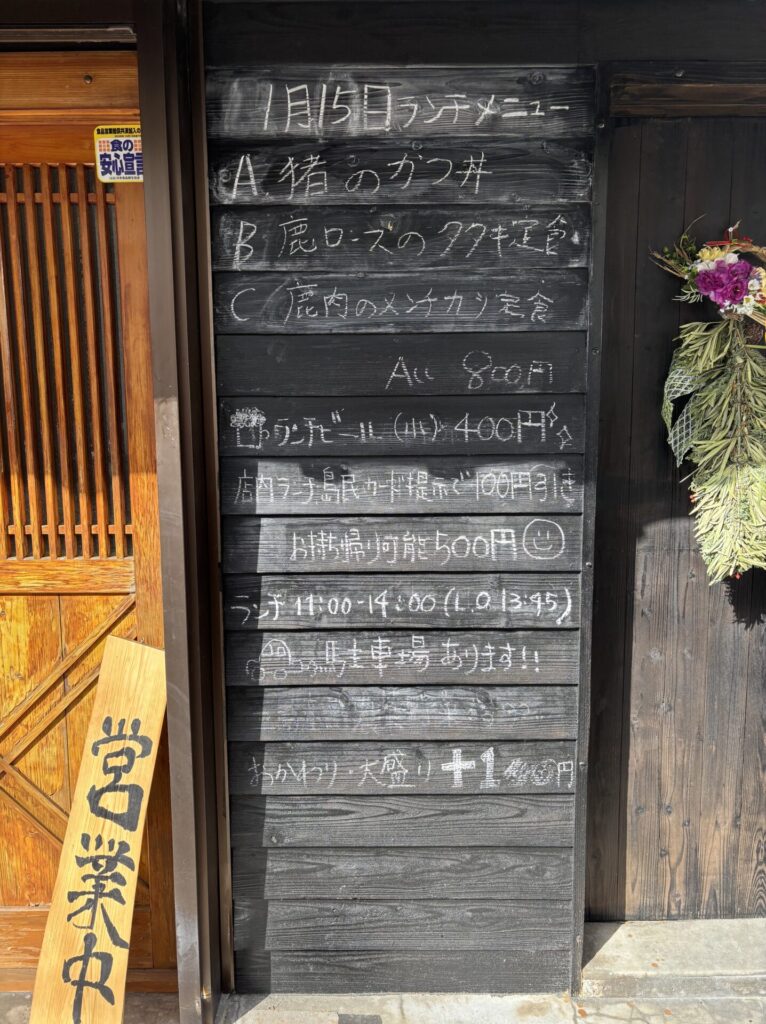 1月15日ランチメニュー
A 猪のかつ丼
B 鹿ロースのタタキ定食
C 鹿肉のメンチカツ定食
All 800円
ランチビール(小)400円
店内ランチ島民カード提示で100円引き
お持ち帰り可能500円
ランチ 11:00-14:00(L.O.13:45)
駐車場あります!!
おかわり・大盛り+100円
食の
安心宣言
営業中